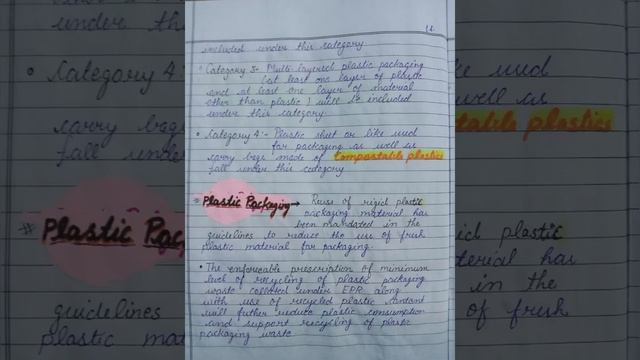 12
included under this category.
• Category 3:- Multi layered plastic packaging
(at least one layer of plastic
and at least one layer of material
other than plastic) will be included
under this category.
• Category 4:- Plastic sheet or like used
for packaging as well as
carry bags made of Compostable plastics
fall under this category
* Plastic Packaging → Reuse of rigid plastic
packaging material has
been mandated in the
guidelines to reduce the use of fresh
plastic material for packaging.
• The enforceable prescription of minimum
level of recycling of plastic packaging
waste collected under EPR along
with use of recycled plastic content
will futher reduce plastic consumption
and support recycling of plastic
packaging waste.